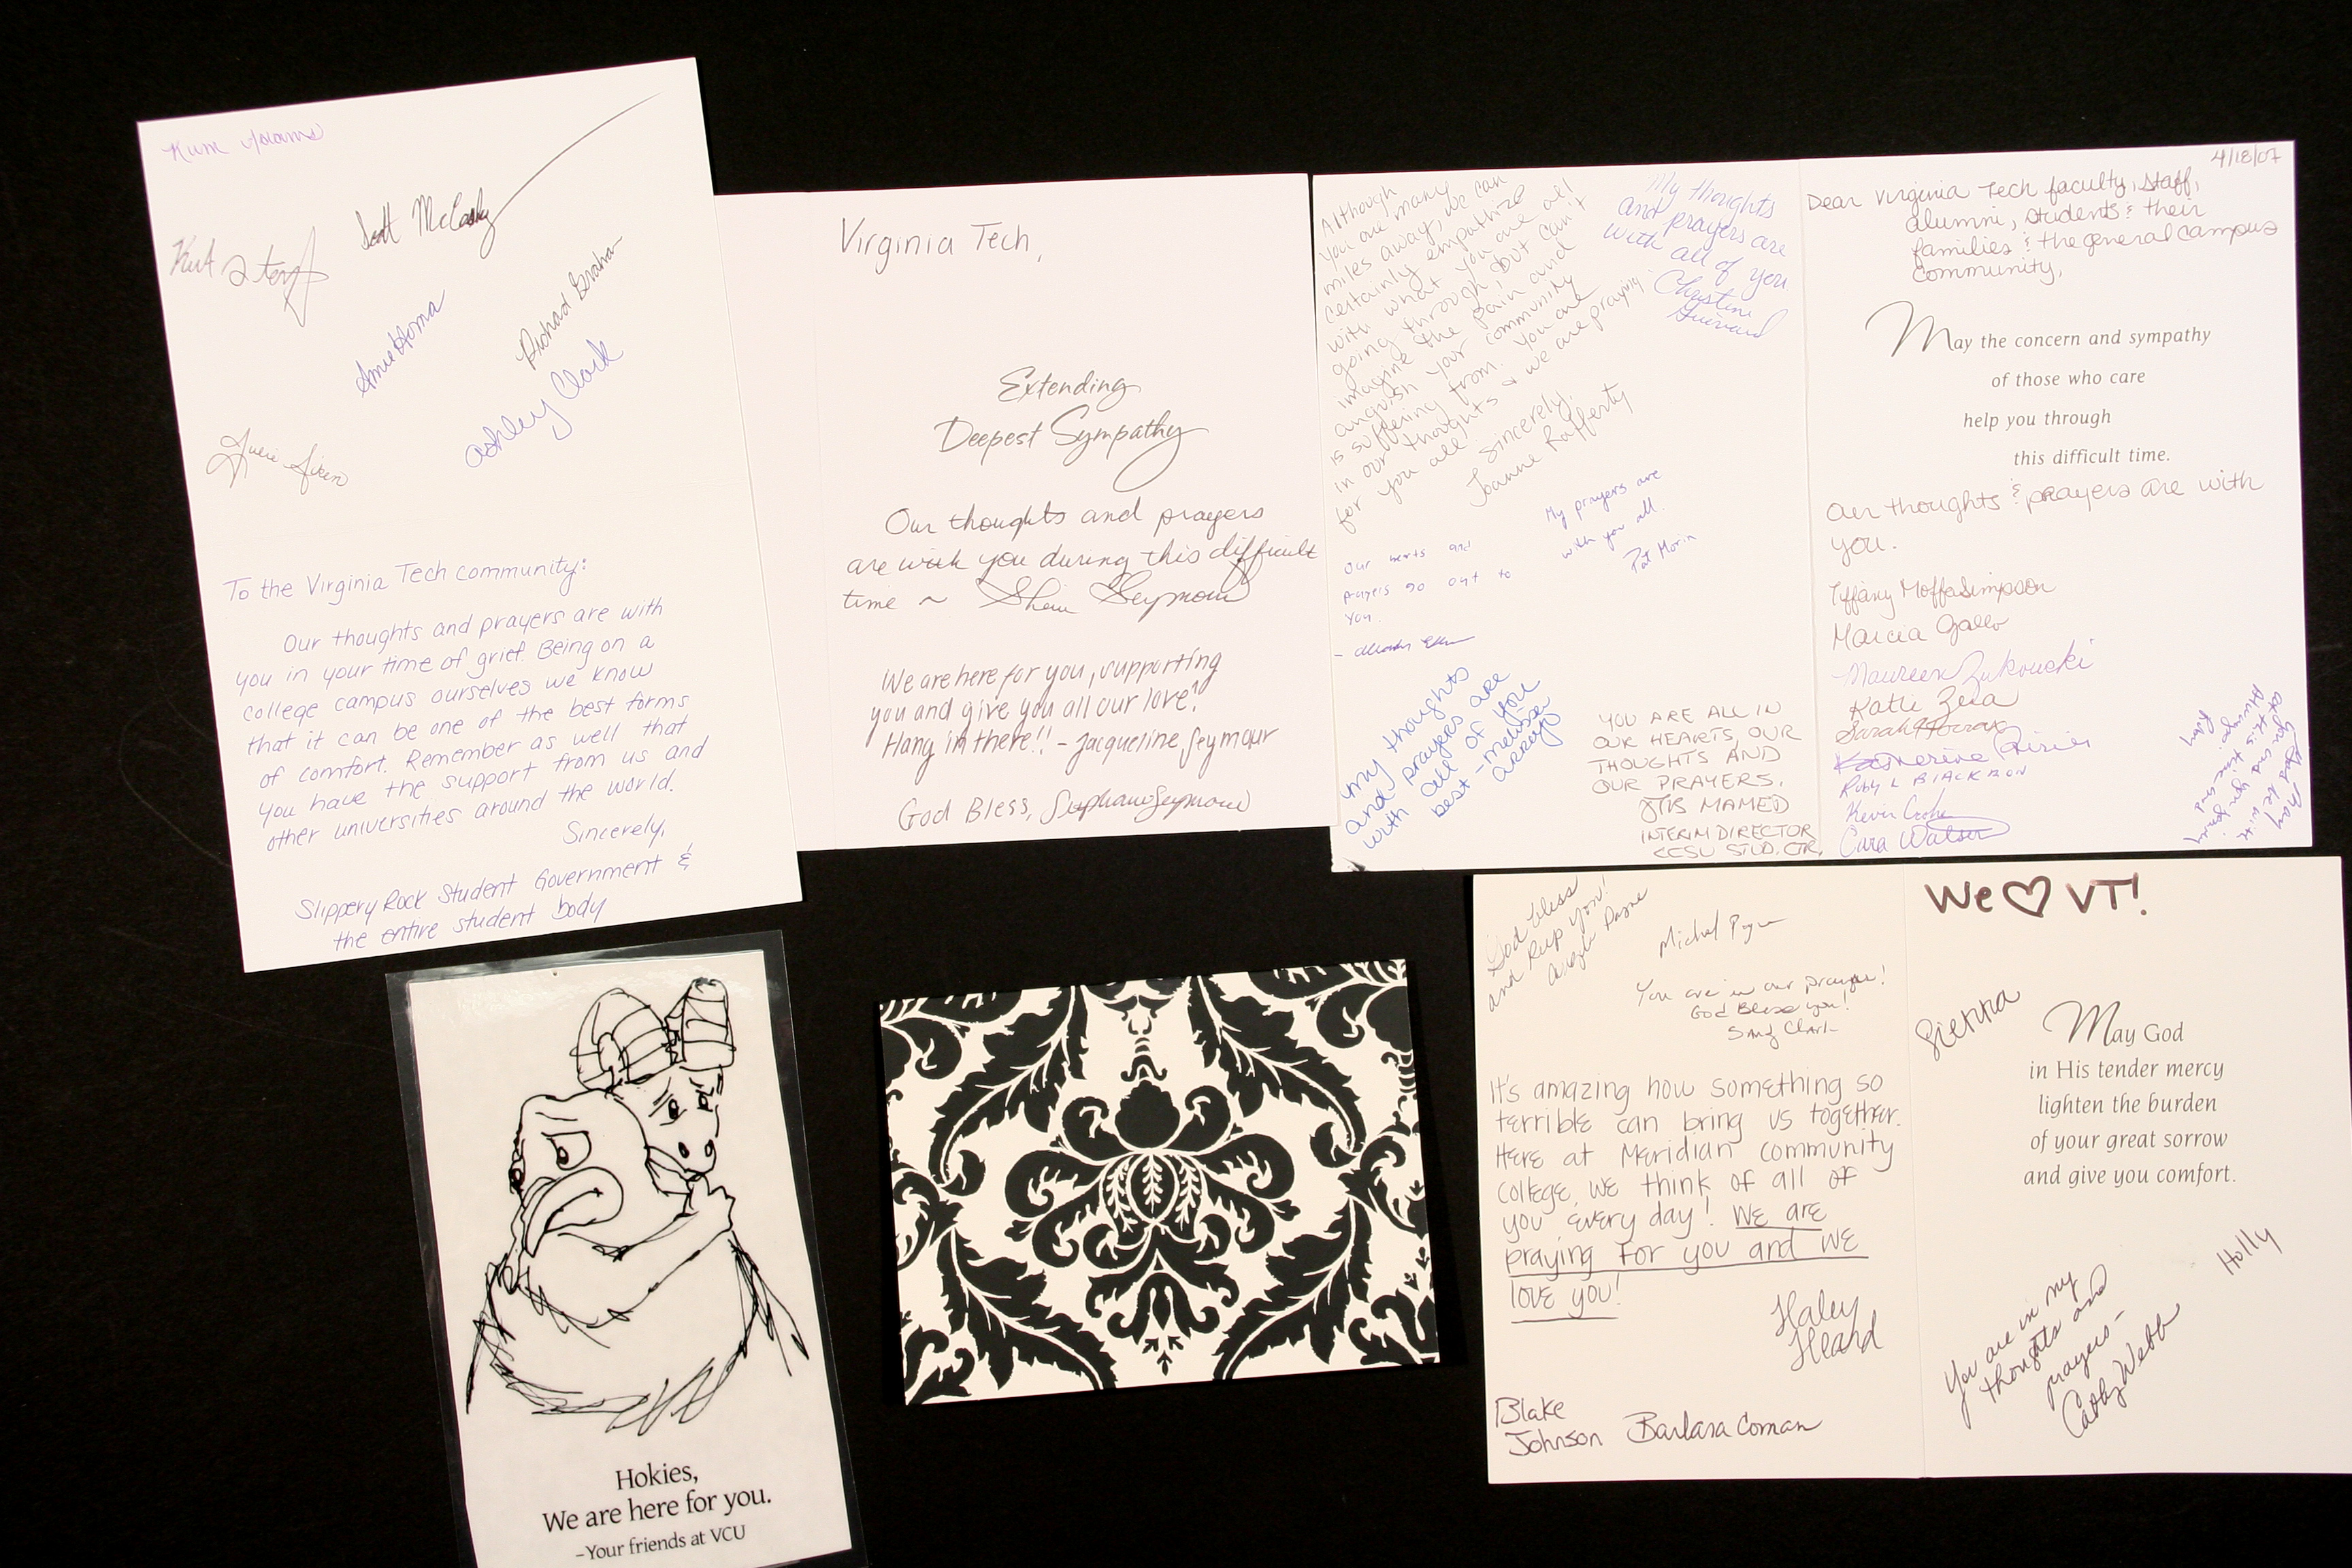 Scott McCosky
Richard Graham
Ashley Clark
To the Virginia Tech community:
Our thoughts and prayers are with
you in your time of grief. Being on a
college campus ourselves we know
that it can be one of the best forms
of comfort. Remember as well that
you have the support from us and
other universities around the world.
Sincerely,
Slippery Rock Student Government &
the entire student body
Virginia Tech,
Extending
Deepest Sympathy
Our thoughts and prayers
are with you during this difficult
time ~ Seymour
We are here for you, supporting
you and give you all our love!
Hang in there!! - Jacqueline Seymour
God Bless, Seymour
Although
you are many
miles away, we can
certainly empathize
with what you are all
going through, but can't
imagine the pain and
anguish your community
is suffering from. You are
in our thoughts & we are praying
for you all.
Sincerely,
Joanne Rafferty
My thoughts
and prayers are
with all of you
Christine
My prayers are
with you all.
Pat Morin
Our herts and
prayers go out to
you.
My thoughts
and prayers are
with all of you
best - melissa
arroyo
YOU ARE ALL IN
OUR HEARTS, OUR
THOUGHTS AND
OUR PRAYERS.
MAMED
INTERIM DIRECTOR
CCSU STUD. CTR.
4/18/07
Dear Virginia Tech faculty, staff,
alumni, students & their
families & the general campus
community,
May the concern and sympathy
of those who care
help you through
this difficult time.
Our thoughts & prayers are with
you.
Tiffany Moffo Simpson
Marcia Gallo
Maureen Zukouski
Katie
Sarah
Katherine
Ruby L Blackmon
Kevin
Cara Watson
Hokies,
We are here for you.
–Your friends at VCU
God bless
and keep you!
Angela Payne
Michel
You are in our prayers!
God Bless you!
Sandy Clark
It's amazing how something so
terrible can bring us together.
Here at Meridian Community
College, we think of all of
you every day! We are
praying for you and we
love you!
Haley
Heard
Blake
Johnson
Barbara Coman
We ♡ VT!
Sienna
May God
in His tender mercy
lighten the burden
of your great sorrow
and give you comfort.
Holly
You are in my
thoughts and
prayers -
Cathy Webb